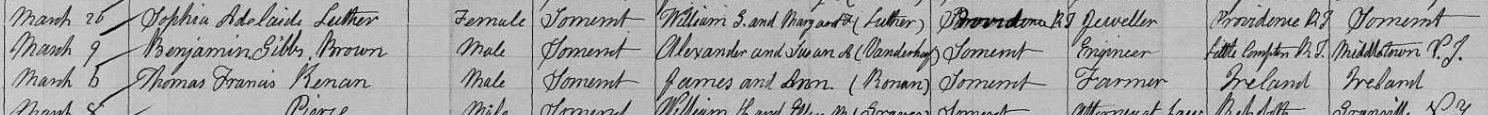 March 26 Sophia Adelaide Luther Female Somerset William S. and Margaret (Luther) Providence R.I Jeweller Providence R.I Somerset
March 9 Benjamin Gibbs Brown Male Somerset Alexander and Susan A (Vanderhoof) Somerset Engineer Little Compton R.I. Middletown N.J.
March 6 Thomas Francis Kenan Male Somerset James and Ann (Ronan) Somerset Farmer Ireland Ireland
March 8 Pierce Male Somerset William H and Ellen M (Graves) Somerset Attorney at Law Rehoboth Granville N.Y.